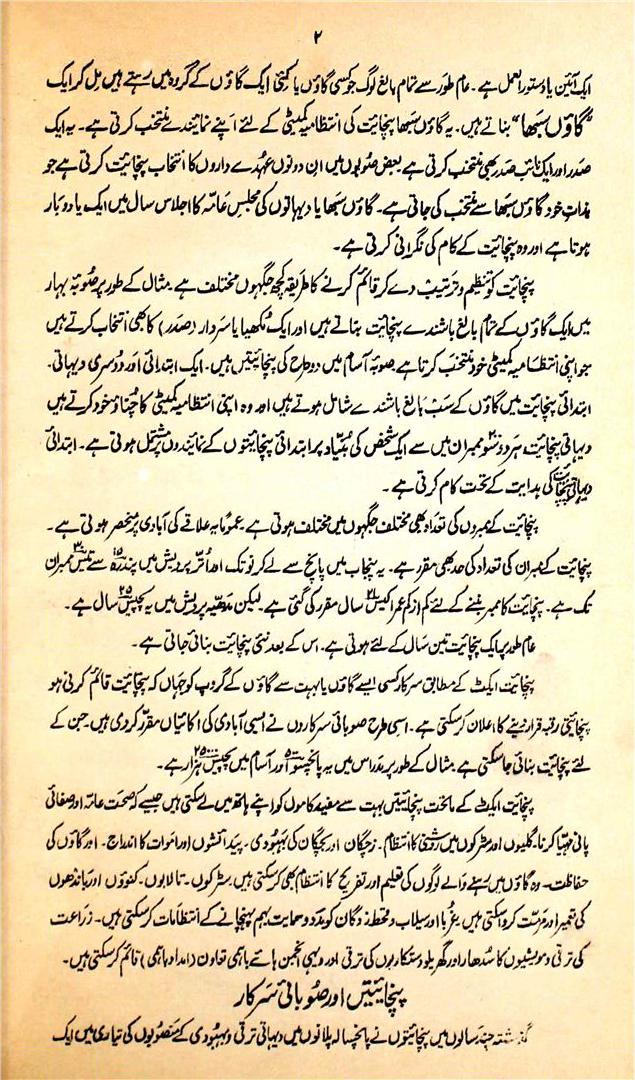 ۲
ایک آئین یا دستور العمل ہے۔ عام طور سے تمام بالغ لوگ جو کسی گاؤں یا کئی ایک گاؤں کے گروہ میں رہتے ہیں مل کر ایک
"گاؤں سبھا" بناتے ہیں۔ یہ گاؤں سبھا پنچائیت کی انتظامیہ کمیٹی کے لئے اپنے نمائیندے منتخب کرتی ہے۔ یہ ایک
صدر اور ایک نائب صدر بھی منتخب کرتی ہے بعض صوبوں میں ان دونوں عہدے داروں کا انتخاب پنچائیت کرتی ہے جو
بذات خود گاؤں سبھا سے منتخب کی جاتی ہے۔ گاؤں سبھا یا دیہاتوں کی مجلس عامہ کا اجلاس سال میں ایک یا دو بار
ہوتا ہے اور وہ پنچائیت کے کام کی نگرانی کرتی ہے۔
پنچائیت کو تنظیم و ترتیب دے کر قائم کرنے کا طریقہ کچھ جگہوں مختلف ہے مثال کے طور پر صوبہ بہار
میں ایک گاؤں کے تمام بالغ باشندے پنچائیت بناتے ہیں اور ایک مکھیا یا سردار (صدر) کا بھی انتخاب کرتے ہیں
جو اپنی انتظامیہ کمیٹی خود منتخب کرتا ہے صوبہ آسام میں دو طرح کی پنچائیتیں ہیں۔ ایک ابتدائی اور دوسری دیہاتی۔
ابتدائی پنچائیت میں گاؤں کے سب بالغ باشندے شامل ہوتے ہیں اور وہ اپنی انتظامیہ کمیٹی کا چناؤ خود کرتے ہیں
دیہاتی پنچائیت ہر دو سو ممبران میں سے ایک شخص کی بنیاد پر ابتدائی پنچائیتوں کے نمائیندوں پر مشتمل ہوتی ہے۔ ابتدائی
دیہاتی پنچائیت کی ہدایت کے تحت کام کرتی ہے۔
پنچائیت کے ممبروں کی تعداد بھی مختلف جگہوں میں مختلف ہوتی ہے۔ عموماً یہ علاقے کی آبادی پر منحصر ہوتی ہے۔
پنچائیت کے ممبران کی تعداد کی حد بھی مقرر ہے۔ یہ پنجاب میں پانچ سے لے کر نو تک اور اُتر پردیش میں پندرہ ۱۵ سے تیس ۳۰ ممبران
تک ہے۔ پنچائیت کا ممبر بننے کے لئے کم از کم عمر اکیس ۲۱ سال مقرر کی گئی ہے۔ لیکن مدھیہ پردیش میں یہ پچیس ۲۵ سال ہے۔
عام طور پر ایک پنچائیت تین سال کے لئے ہوتی ہے۔ اس کے بعد نئی پنچائیت بنائی جاتی ہے۔
پنچائیت ایکٹ کے مطابق سرکار کسی ایسے گاؤں یا بہت سے گاؤں کے گروپ کو جہاں کہ پنچائیت قائم کرنی ہو
پنچائیتی رقبہ قرار دینے کا اعلان کر سکتی ہے۔ اسی طرح صوبائی سرکاروں نے ایسی آبادی کی اکائیاں مقرر کر دی ہیں۔ جن کے
لئے پنچائیت بنائی جا سکتی ہے مثال کے طور پر مدراس میں یہ پانچسو ۵۰۰ اور آسام میں پچیس ۲۵۰۰۰ ہزار ہے۔
پنچائیت ایکٹ کے ماتحت پنچائیتیں بہت سے مفید کاموں کو اپنے ہاتھ میں لے سکتی ہیں جیسے کہ صحت عامہ اور صفائی
پانی مہیا کرنا۔ گلیوں اور سڑکوں میں روشنی کا انتظام۔ زچگان اور بچگان کی بہبودی۔ پیدائشوں اور اموات کا اندراج۔ اور گاؤں کی
حفاظت۔ وہ گاؤں میں رہنے والے لوگوں کی تعلیم اور تفریح کا انتظام بھی کر سکتی ہیں۔ سڑکوں۔ تالابوں۔ کنوؤں اور باندھوں
کی تعمیر اور مرمت کروا سکتی ہیں۔ غربا اور سیلاب و قحط زدگان کو مدد و حمایت بہم پہنچانے کے انتظامات کر سکتی ہیں۔ زراعت
کی ترقی و مویشیوں کا سدھار اور گھریلو دستکاریوں کی ترقی اور دیہی انجمن ہائے باہمی تعاون (امداد باہمی) قائم کر سکتی ہیں۔
پنچائیتیں اور صوبائی سرکار
گذشتہ چند سالوں میں پنچائیتوں نے پانچسالہ پلانوں میں دیہاتی ترقی و بہبودی کے منصوبوں کی تیاری میں ایک